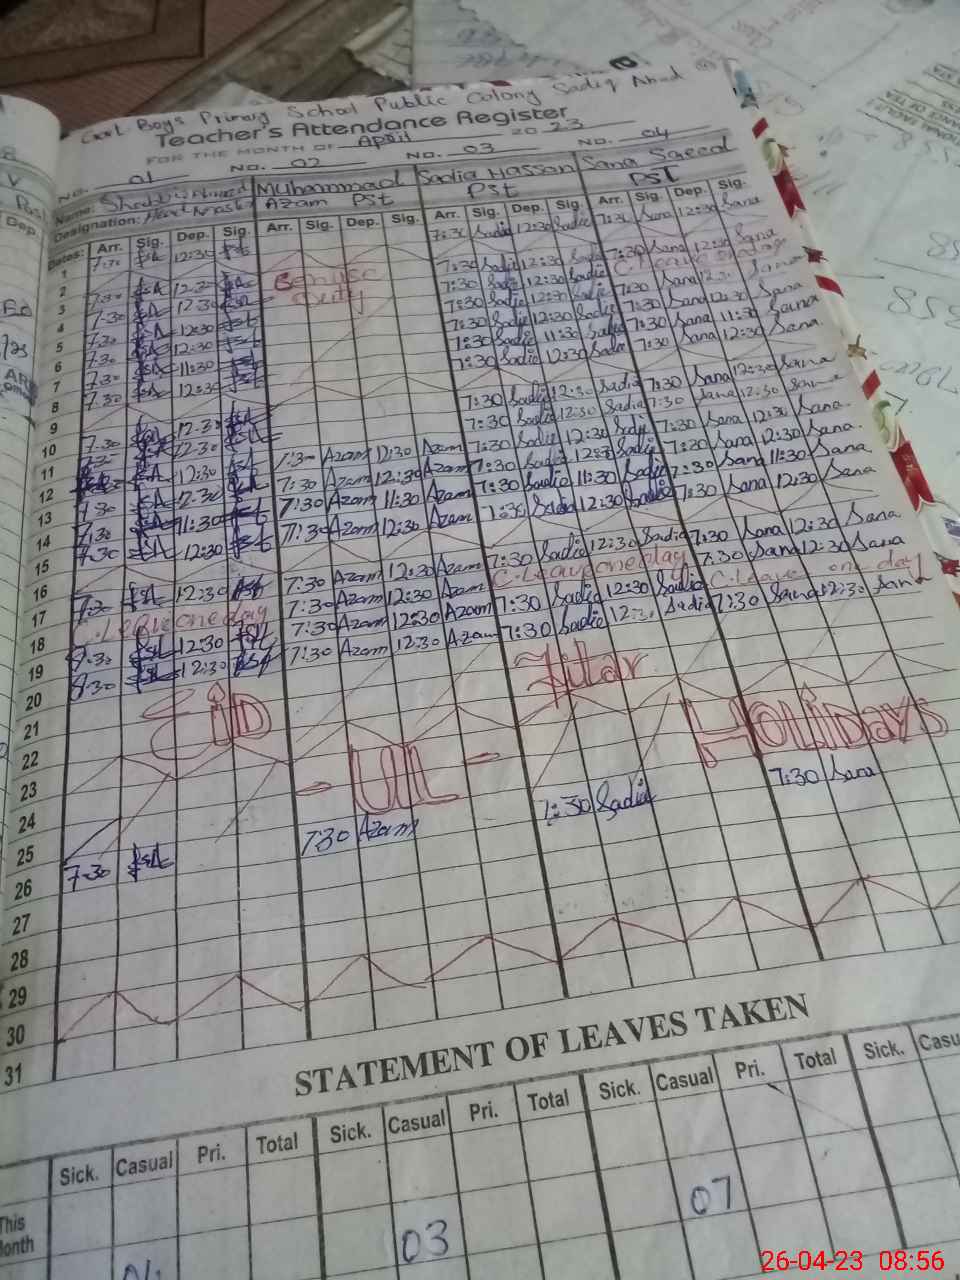 Govt Boys Primary School Public Colony Sadiq Abad
Teacher's Attendance Register
FOR THE MONTH OF April 2023
NO. 01 NO. 02 NO. 03 NO. 04
Name: Muhammad Sadia Hassan Sana Saeed
Designation: Head Master Azam PSt PSt PSt
Dates: Arr. Sig. Dep. Sig. Arr. Sig. Dep. Sig. Arr. Sig. Dep. Sig. Arr. Sig. Dep. Sig.
1 7:30 12:30 7:30 Sadia 12:30 Sadia 7:30 Sana 12:30 Sana
2
3 7:30 12:30 duty 7:30 Sadia 12:30 Sadia 7:30 Sana 12:30 Sana
4 7:30 12:30 7:30 Sadia 12:30 Sadia C. Leave
5 7:30 12:30 7:30 Sadia 12:30 Sadia 7:30 Sana 12:30 Sana
6 7:30 12:30 7:30 Sadia 12:30 Sadia 7:30 Sana 12:30 Sana
7 7:30 11:30 7:30 Sadia 11:30 Sadia 7:30 Sana 11:30 Sana
8 7:30 12:30 7:30 Sadia 12:30 Sadia 7:30 Sana 12:30 Sana
9
10 7:30 12:30 7:30 Sadia 12:30 Sadia 7:30 Sana 12:30 Sana
11 12:30 7:30 Sadia 12:30 Sadia 7:30 Sana 12:30 Sana
12 12:30 7:30 Azam 12:30 Azam 7:30 Sadia 12:30 Sadia 7:30 Sana 12:30 Sana
13 7:30 12:30 7:30 Azam 12:30 Azam 7:30 Sadia 12:30 Sadia 7:30 Sana 12:30 Sana
14 7:30 11:30 7:30 Azam 11:30 Azam 7:30 Sadia 11:30 Sadia 7:30 Sana 11:30 Sana
15 7:30 12:30 7:30 Azam 12:30 Azam 7:30 Sadia 12:30 Sadia 7:30 Sana 12:30 Sana
16
17 7:30 12:30 7:30 Azam 12:30 Azam 7:30 Sadia 12:30 Sadia 7:30 Sana 12:30 Sana
18 C. Leave one day 7:30 Azam 12:30 Azam C. Leave one day 7:30 Sana 12:30 Sana
19 7:30 12:30 7:30 Azam 12:30 Azam 7:30 Sadia 12:30 Sadia C. Leave one day
20 7:30 12:30 7:30 Azam 12:30 Azam 7:30 Sadia 12:30 Sadia 7:30 Sana 12:30 Sana
21
22 EiD - Ul - Fitar HOLiDAYS
23
24
25
26 7:30 7:30 Azam 7:30 Sadia 7:30 Sana
27
28
29
30
31
STATEMENT OF LEAVES TAKEN
Sick. Casual Pri. Total Sick. Casual Pri. Total Sick. Casual Pri. Total Sick. Casu
This Month 03 07
26-04-23 08:56